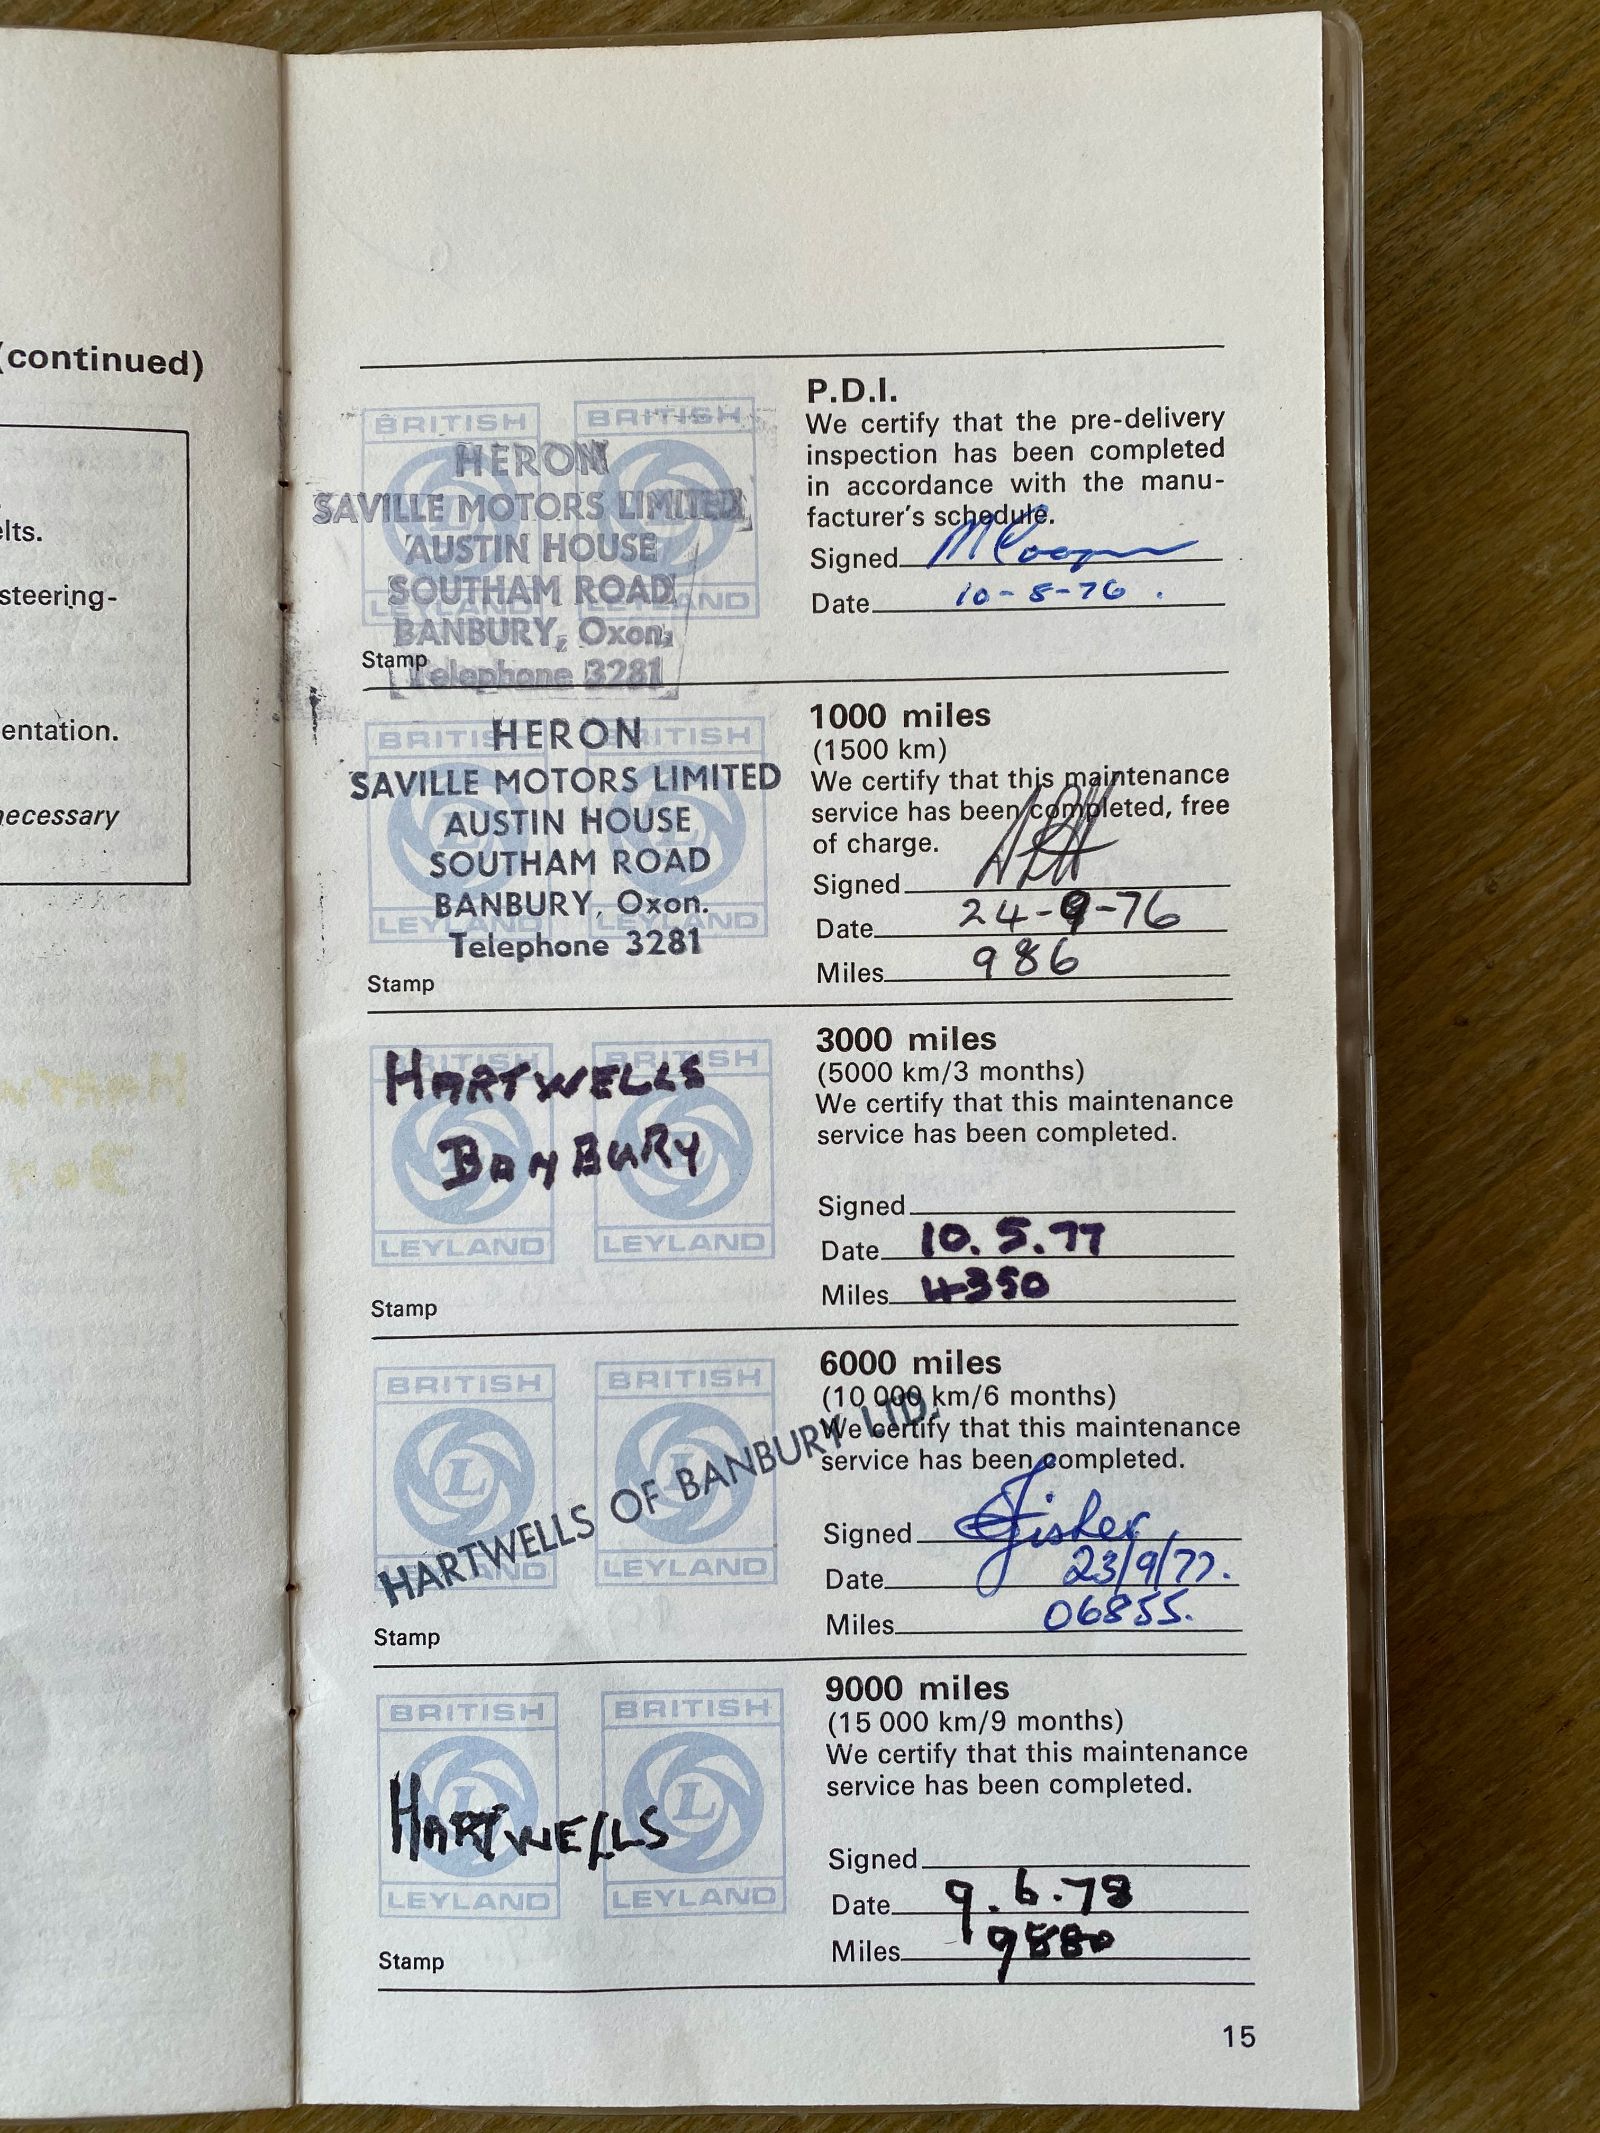 (continued)
elts.
steering-
entation.
necessary
BRITISH BRITISH
LEYLAND LEYLAND
HERON
SAVILLE MOTORS LIMITED
AUSTIN HOUSE
SOUTHAM ROAD
BANBURY, Oxon.
Telephone 3281
Stamp
P.D.I.
We certify that the pre-delivery
inspection has been completed
in accordance with the manu-
facturer's schedule.
Signed M Cooper
Date 10-8-76.
BRITISH BRITISH
LEYLAND LEYLAND
HERON
SAVILLE MOTORS LIMITED
AUSTIN HOUSE
SOUTHAM ROAD
BANBURY, Oxon.
Telephone 3281
Stamp
1000 miles
(1500 km)
We certify that this maintenance
service has been completed, free
of charge.
Signed
Date 24-9-76
Miles 986
BRITISH BRITISH
L L
LEYLAND LEYLAND
HARTWELLS
BANBURY
Stamp
3000 miles
(5000 km/3 months)
We certify that this maintenance
service has been completed.
Signed
Date 10.5.77
Miles 4350
BRITISH BRITISH
L L
LEYLAND LEYLAND
HARTWELLS OF BANBURY LTD.
Stamp
6000 miles
(10 000 km/6 months)
We certify that this maintenance
service has been completed.
Signed Fisher
Date 23/9/77.
Miles 06855.
BRITISH BRITISH
L L
LEYLAND LEYLAND
HARTWELLS
Stamp
9000 miles
(15 000 km/9 months)
We certify that this maintenance
service has been completed.
Signed
Date 9.6.78
Miles 9880
15